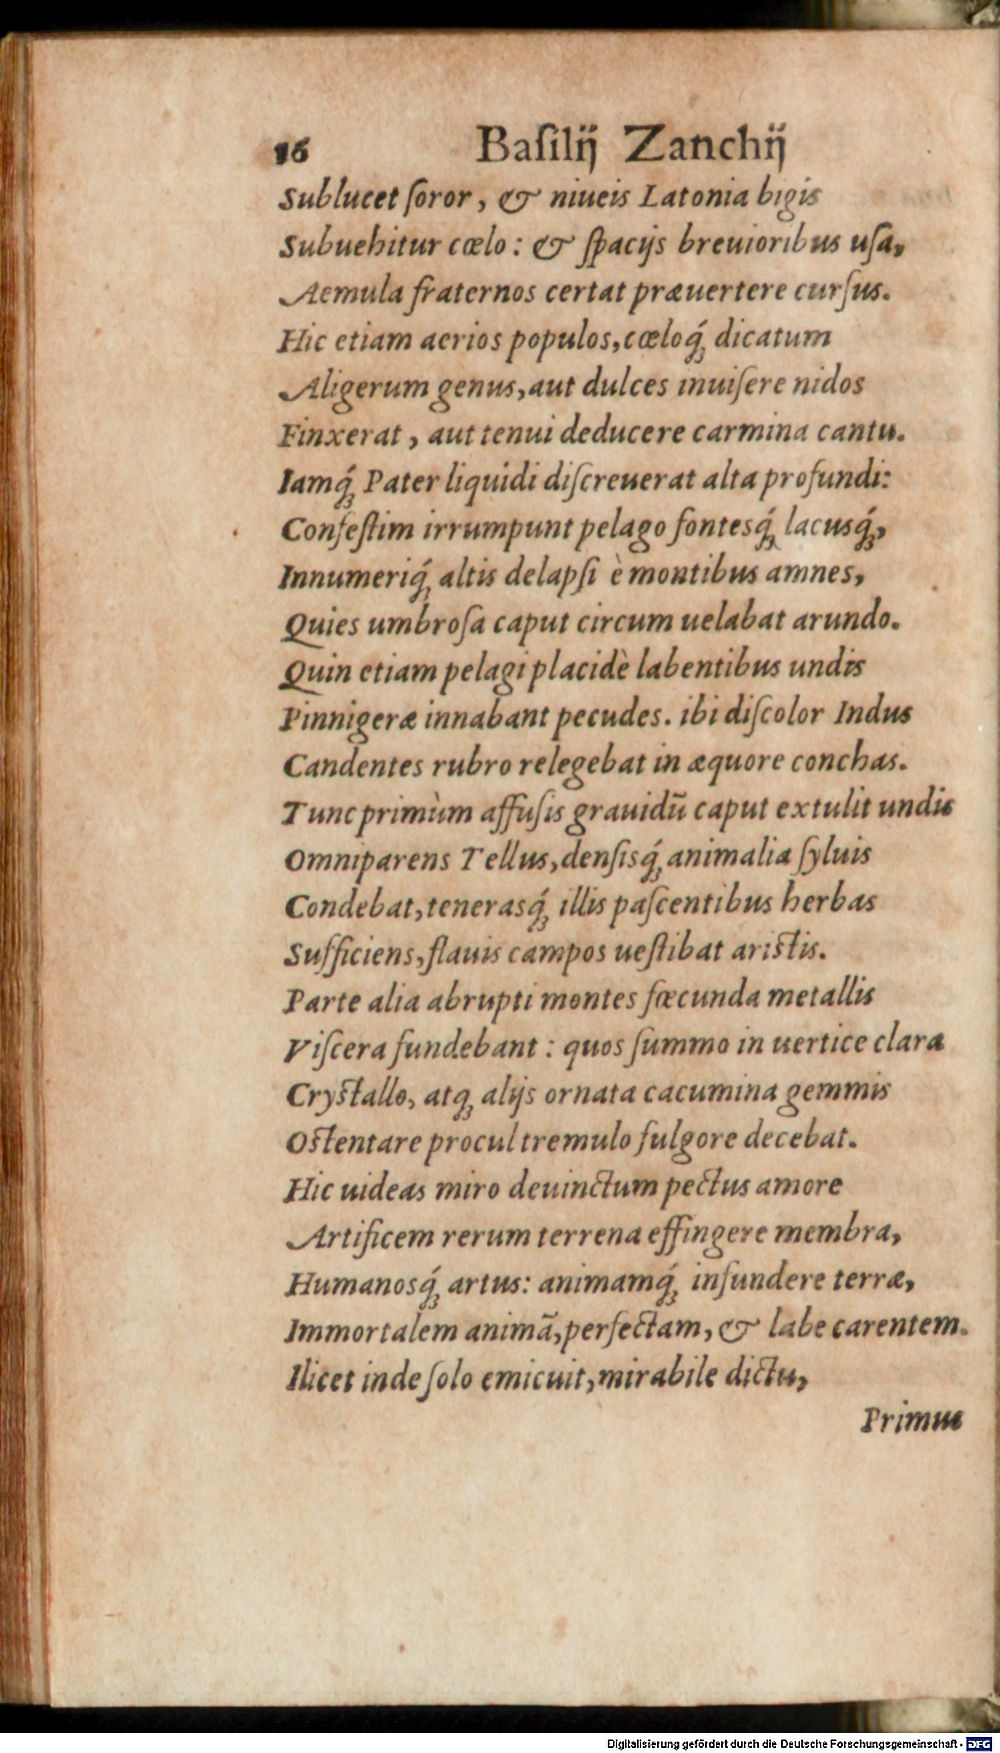 16 Baſilij Zanchij
Sublucet ſoror, & niueis Latonia bigis
Subuehitur cœlo: & ſpacijs breuioribus uſa,
Aemula fraternos certat præuertere curſus.
Hic etiam aerios populos, cœloq́; dicatum
Aligerum genus, aut dulces inuiſere nidos
Finxerat, aut tenui deducere carmina cantu.
Iamq́; Pater liquidi diſcreuerat alta profundi:
Confeſtim irrumpunt pelago fontesq́; lacusq́;,
Innumeriq́; altis delapſi è montibus amnes,
Quies umbroſa caput circum uelabat arundo.
Quin etiam pelagi placidè labentibus undis
Pinnigeræ innabant pecudes. ibi diſcolor Indus
Candentes rubro relegebat in æquore conchas.
Tunc primùm affuſis grauidū caput extulit undis
Omniparens Tellus, denſisq́; animalia ſyluis
Condebat, tenerasq́; illis paſcentibus herbas
Sufficiens, flauis campos ueſtibat ariſtis.
Parte alia abrupti montes fœcunda metallis
Viſcera fundebant: quos ſummo in uertice clara
Cryſtallo, atq; alijs ornata cacumina gemmis
Oſtentare procul tremulo fulgore decebat.
Hic uideas miro deuinctum pectus amore
Artificem rerum terrena effingere membra,
Humanosq́; artus: animamq́; infundere terræ,
Immortalem animā, perfectam, & labe carentem.
Ilicet inde ſolo emicuit, mirabile dictu,
Primus
Digitalisierung gefördert durch die Deutsche Forschungsgemeinschaft - DFG